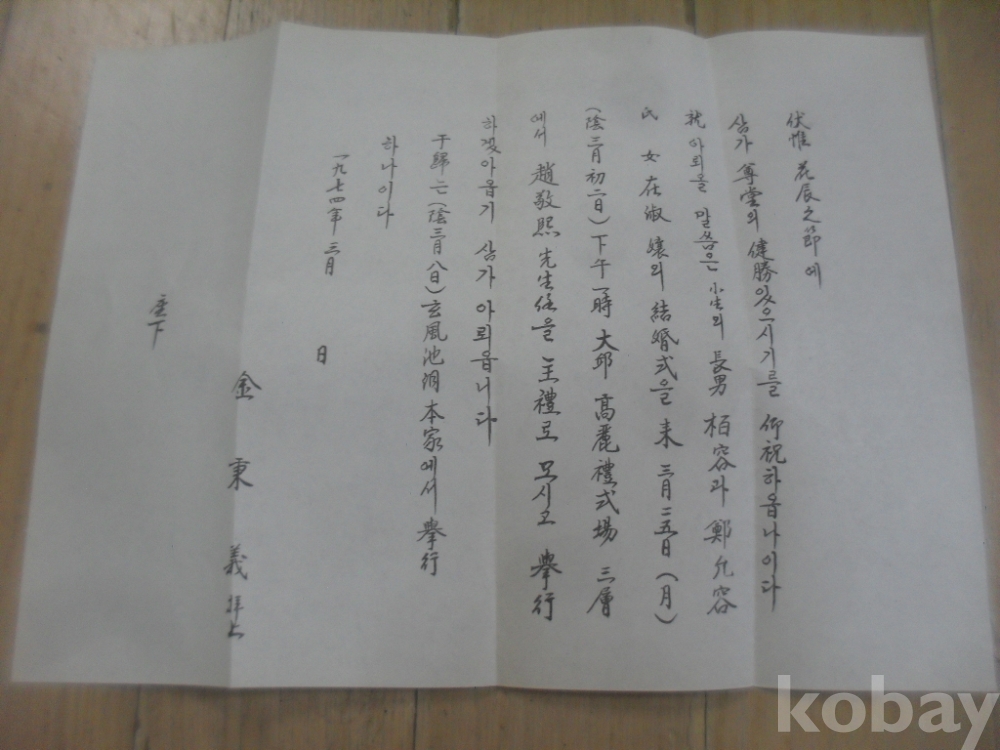 伏惟 花辰之節에
삼가 尊堂의 健勝있으시기를 仰祝하옵나이다
就 아뢰올 말씀은 小生의 長男 栢容과 鄭允容
氏 女 在淑 孃의 結婚式을 来 三月二五日(月)
(陰三月初二日) 下午一時 大邱 高麗禮式場 三層
에서 趙敬熙 先生任을 主禮로 모시고 擧行
하겠아옵기 삼가 아뢰옵니다
于歸는 (陰三月八日) 玄風池洞本家에서 擧行
하나이다
一九七四年 三月 日
金秉義 拜上
座下
kobay